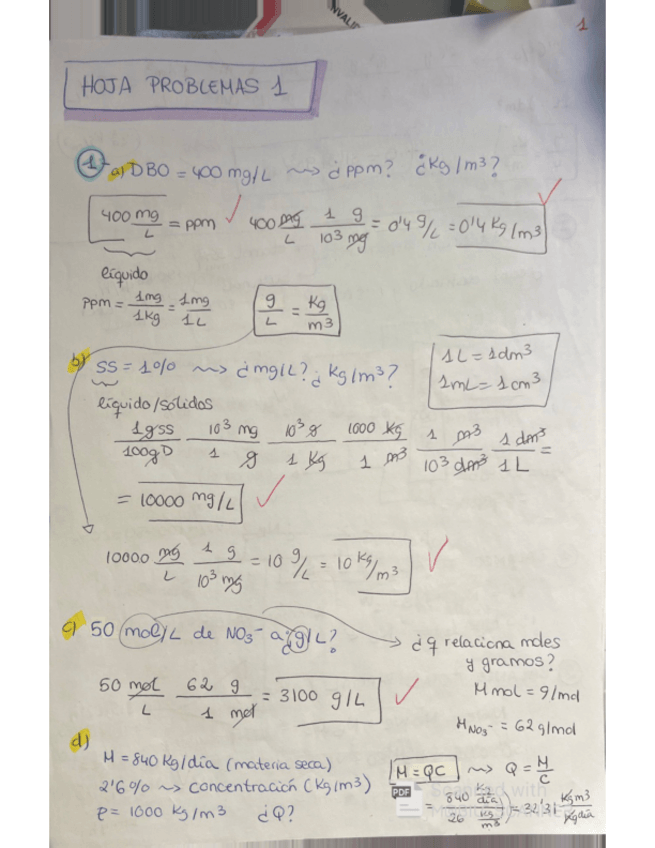 1
HOJA PROBLEMAS 1
1 a) DBO = 400 mg/L ⇝ ¿ppm? ¿Kg/m³?
400 mg/L = ppm ✓ 400 mg/L · 1 g/10³ mg = 0'4 g/L = 0'4 Kg/m³ ✓
líquido
ppm = 1mg/1Kg = 1mg/1L
g/L = Kg/m³
b) SS = 1% ⇝ ¿mg/L? ¿Kg/m³?
líquido/sólidos
1L = 1dm³
1mL = 1cm³
1gss/100gD 10³ mg/1 g 10³ g/1 Kg 1000 Kg/1 m³ 1 m³/10³ dm³ 1 dm³/1L =
= 10000 mg/L ✓
10000 mg/L 1 g/10³ mg = 10 g/L = 10 Kg/m³ ✓
c) 50 mol/L de NO₃⁻ a ¿g/L?
→ ¿q relaciona moles
y gramos?
50 mol/L 62 g/1 mol = 3100 g/L ✓
M mol = g/mol
M NO₃⁻ = 62 g/mol
d)
M = 840 Kg/día (materia seca)
2'6% ⇝ concentración (Kg/m³)
ρ = 1000 Kg/m³ ¿Q?
M = QC ⇝ Q = M/C
= 840 Kg/día / 26 Kg/m³ = 32'31 Kg m³/Kg día
PDF
Scanned with